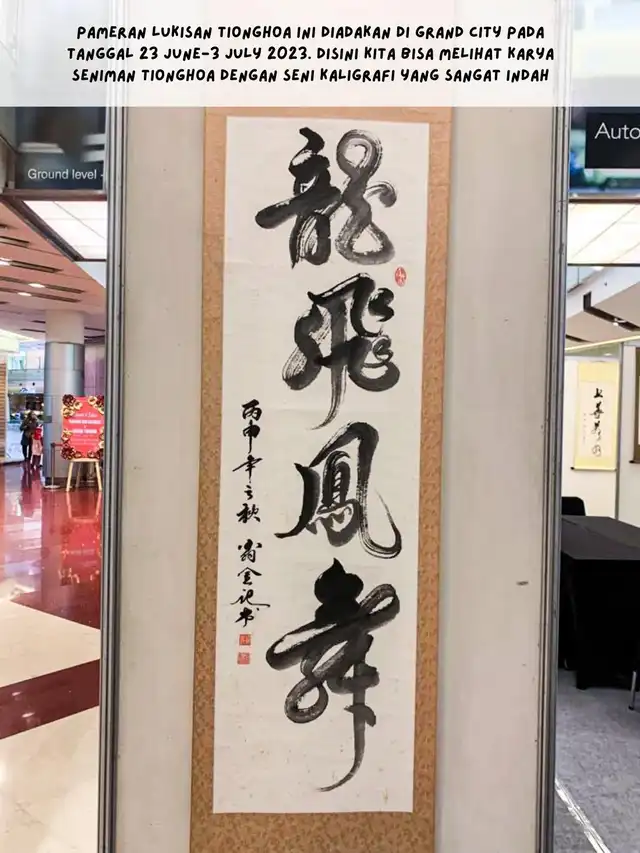 PAMERAN LUKISAN TIONGHOA INI DIADAKAN DI GRAND CITY PADA
TANGGAL 23 JUNE-3 JULY 2023. DISINI KITA BISA MELIHAT KARYA
SENIMAN TIONGHOA DENGAN SENI KALIGRAFI YANG SANGAT INDAH
Ground level
Auto
龍飛鳳舞
丙申年之秋 翁金記书